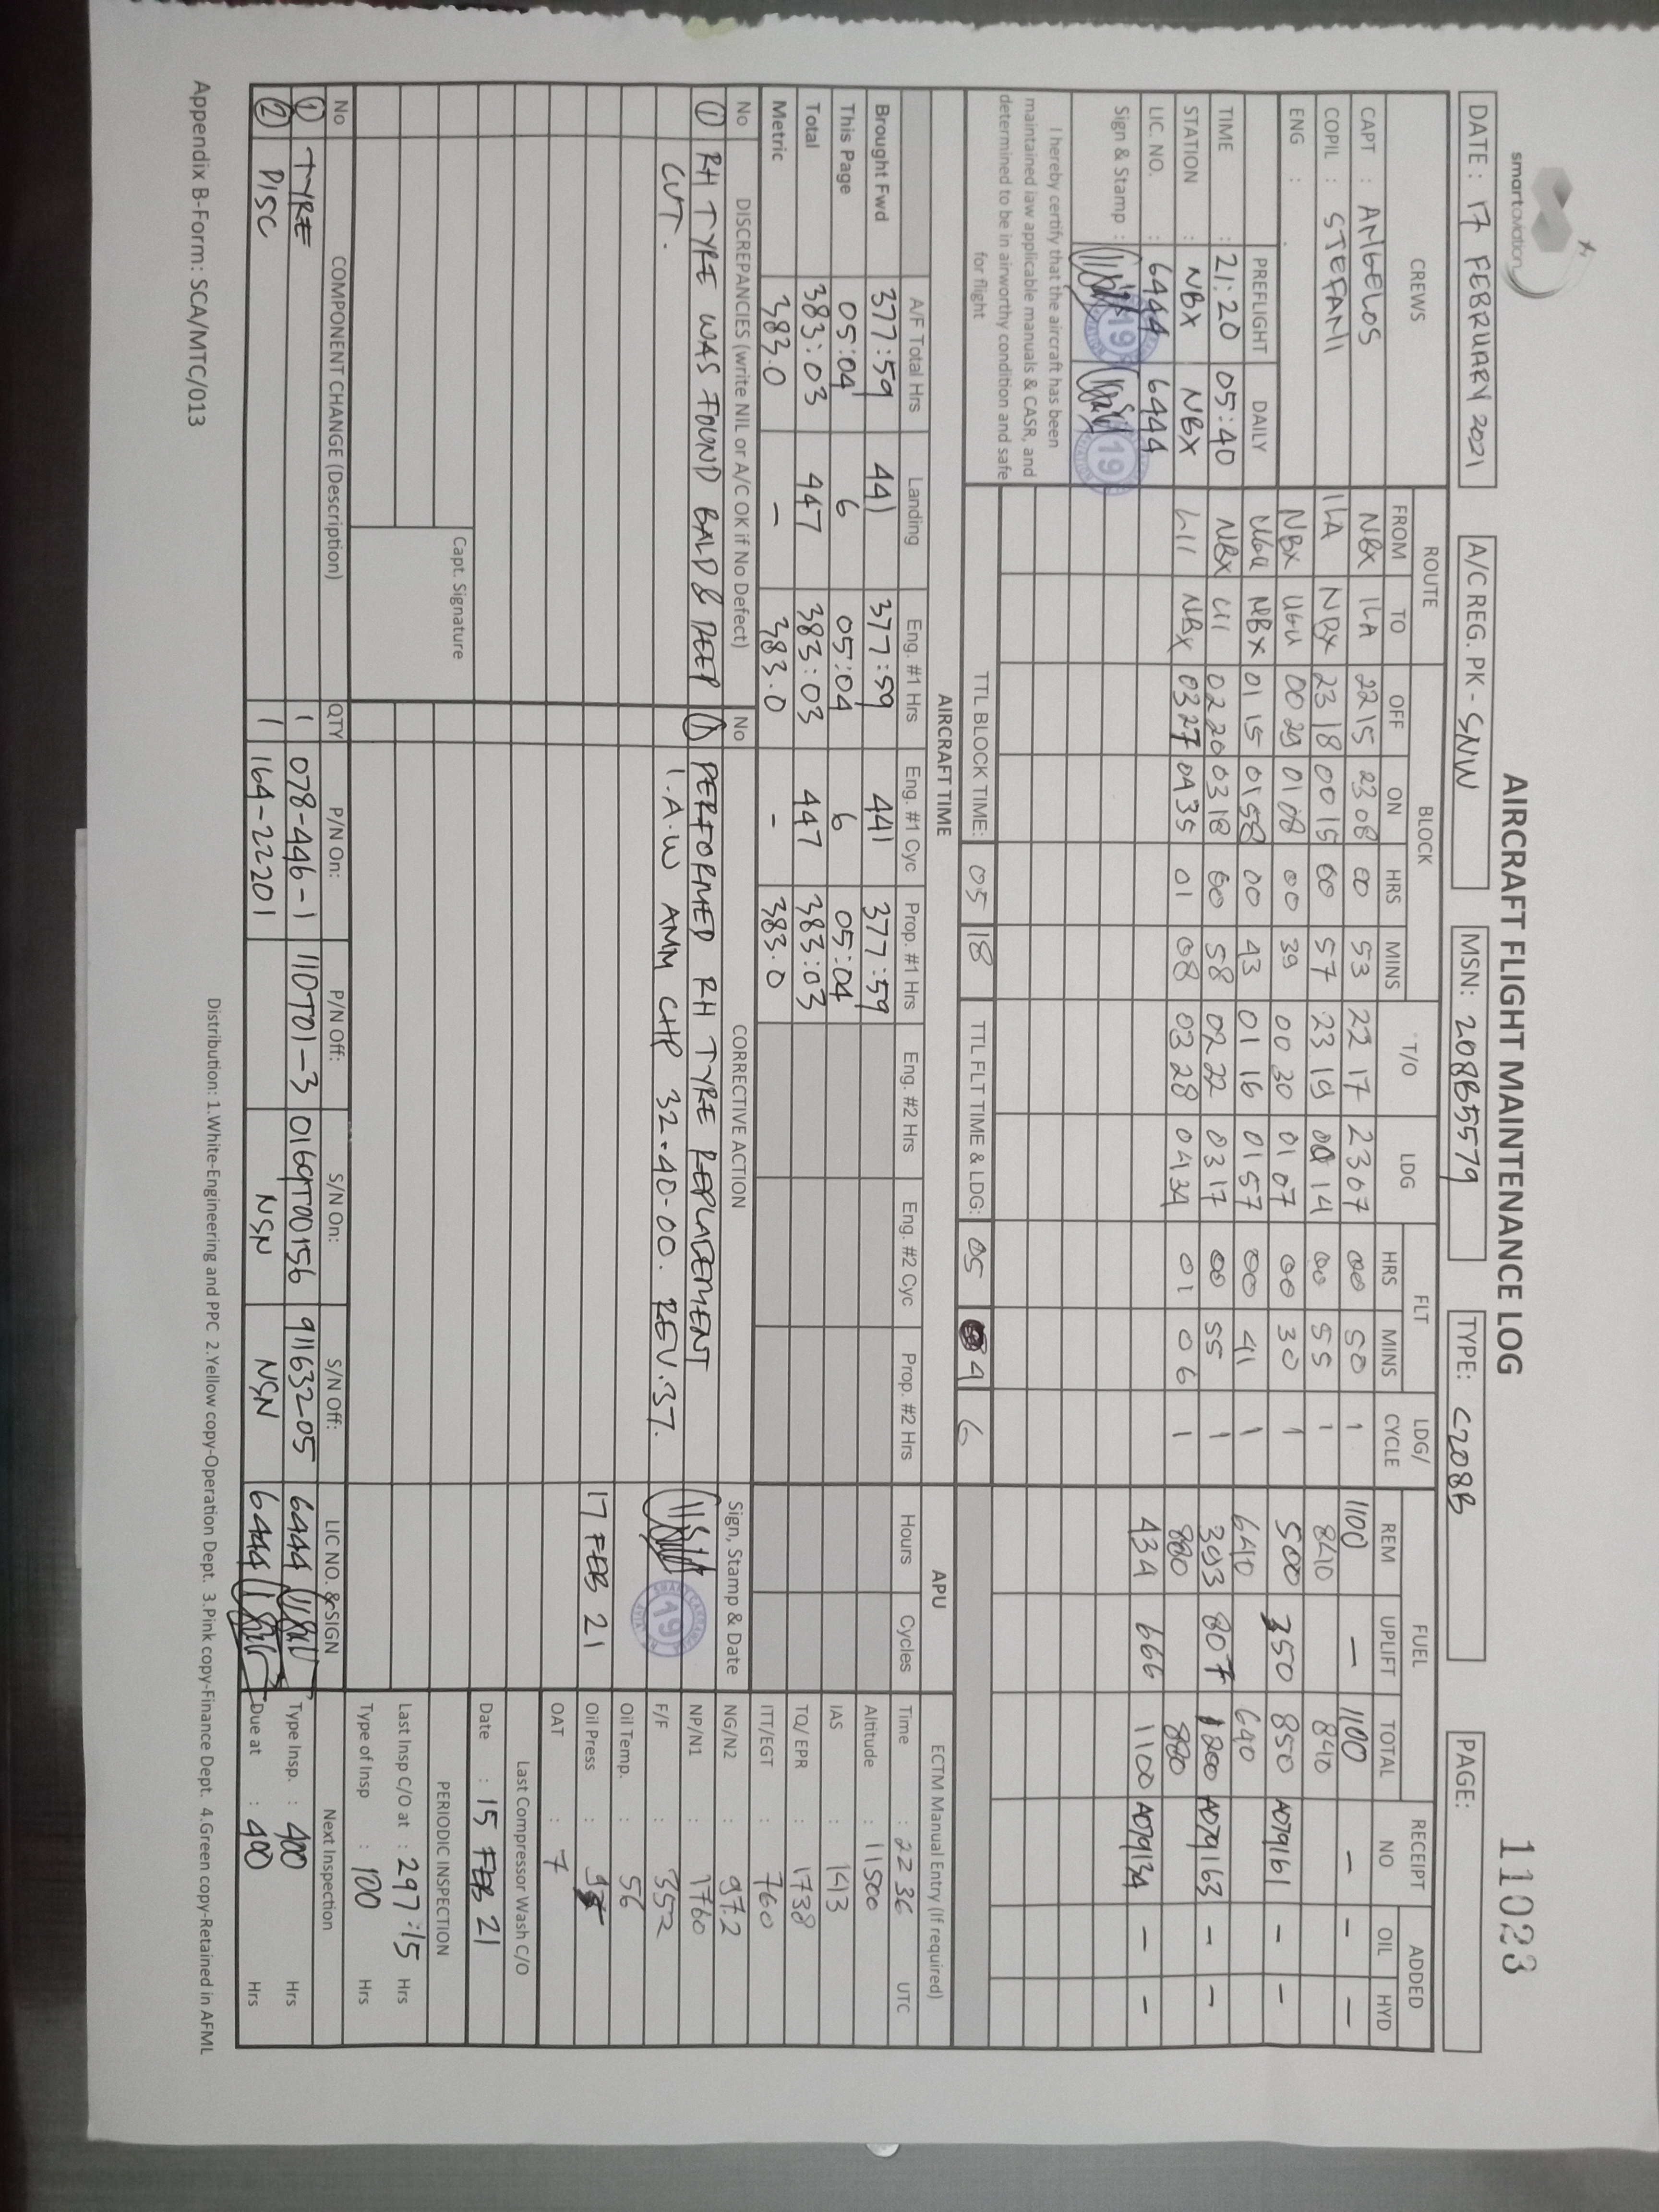 smartaviation
AIRCRAFT FLIGHT MAINTENANCE LOG
11023
DATE : 17 FEBRUARY 2021 A/C REG. PK - SNW MSN: 208B5579 TYPE: C208B PAGE:
CREWS ROUTE BLOCK T/O LDG FLT LDG/ CYCLE FUEL RECEIPT NO ADDED
FROM TO OFF ON HRS MINS HRS MINS REM UPLIFT TOTAL OIL HYD
CAPT : ANGELOS NBX ILA 22 15 23 08 00 53 22 17 23 07 00 50 1 1100 — 1100 — — —
COPIL : STEFANI ILA NBX 23 18 00 15 00 57 23 19 00 14 00 55 1 840 840
ENG : NBX UGU 00 29 01 08 00 39 00 30 01 07 00 30 1 500 350 850 A079161 — —
PREFLIGHT DAILY UGU NBX 01 15 01 58 00 43 01 16 01 57 00 41 1 640 640
TIME : 21:20 05:40 NBX LII 02 20 03 18 00 58 02 22 03 17 00 55 1 393 807 1200 A079163 — —
STATION : NBX NBX LII NBX 03 27 04 35 01 08 03 28 04 34 01 06 1 880 880
LIC. NO. : 6444 6444 434 666 1100 A079134 — —
Sign & Stamp : 19 19
I hereby certify that the aircraft has been
maintained iaw applicable manuals & CASR, and
determined to be in airworthy condition and safe
for flight
TTL BLOCK TIME: 05 18 TTL FLT TIME & LDG: 05 4 6
AIRCRAFT TIME APU ECTM Manual Entry (If required)
A/F Total Hrs Landing Eng. #1 Hrs Eng. #1 Cyc Prop. #1 Hrs Eng. #2 Hrs Eng. #2 Cyc Prop. #2 Hrs Hours Cycles Time : 22 36 UTC
Brought Fwd 377:59 441 377:59 441 377:59 Altitude : 11500
This Page 05:04 6 05:04 6 05:04 IAS : 143
Total 383:03 447 383:03 447 383:03 TQ/ EPR : 1738
Metric 383.0 — 383.0 - 383.0 ITT/EGT : 760
No DISCREPANCIES (write NIL or A/C OK if No Defect) No CORRECTIVE ACTION Sign, Stamp & Date NG/N2 : 97.2
① RH TYRE WAS FOUND BALD & DEEP ① PERFORMED RH TYRE REPLACEMENT NP/N1 : 1760
CUT. I.A.W AMM CHP 32-40-00. REV.37. 19 F/F : 352
Oil Temp. : 56
17 FEB 21 Oil Press :
OAT : 7
Last Compressor Wash C/O
Date : 15 FEB 21
Capt. Signature PERIODIC INSPECTION
Last Insp C/O at : 297:15 Hrs
Type of Insp : 100 Hrs
No COMPONENT CHANGE (Description) QTY P/N On: P/N Off: S/N On: S/N Off: LIC NO. & SIGN Next Inspection
① TYRE 1 078-446-1 110T01-3 0169T00156 91163205 6444 Type Insp. : 400 Hrs
② DISC 1 164-22201 NSN NSN 6444 Due at : 400 Hrs
Distribution: 1.White-Engineering and PPC 2.Yellow copy-Operation Dept. 3.Pink copy-Finance Dept. 4.Green copy-Retained in AFML
Appendix B-Form: SCA/MTC/013